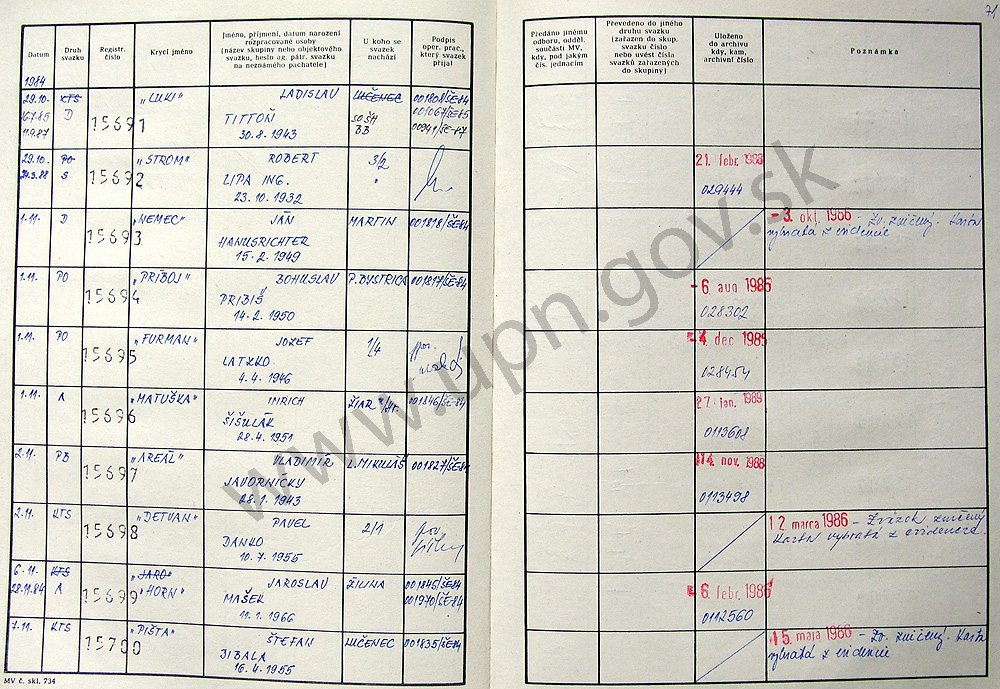 71
Datum
Druh svazku
Registr. číslo
Krycí jméno
Jméno, příjmení, datum narození
rozpracované osoby
(název skupiny nebo objektového
svazku, heslo ag. pátr. svazku
na neznámého pachatele)
U koho se
svazek
nachází
Podpis
oper. prac.,
který svazek
přijal
Předáno jinému
odboru, odděl.
součásti MV,
kdy, pod jakým
čís. jednacím
Převedeno do jiného
druhu svazku
(zařazen do skup.
svazku číslo
nebo uvést čísla
svazků zařazených
do skupiny)
Uloženo
do archivu
kdy, kam,
archivní číslo
Poznámka
1984
29.10. KTS 15691 "LUKI" LADISLAV LUČENEC 001808/ŠE-84
16.7.85 D TITTOŇ SOŠH 001067/ŠE-85
11.9.87 30.8.1943 BB 00941/ŠE-87
29.10. PO 15692 "STROM" ROBERT 3/2 21. febr. 1988
S LIPA ING. 029444
23.10.1932
1.11. D 15693 "NEMEC" JÁN MARTIN 001818/ŠE-84 -3. okt. 1986 - Zv. zničený. Karta
HANUSRICHTER vybratá z evidencie
15.2.1949
1.11. PO 15694 "PRÍBOJ" BOHUSLAV P. BYSTRICA 001817/ŠE-84 -6. aug 1986
PRIBIŠ 028302
14.2.1950
1.11. PO 15695 "FURMAN" JOZEF 1/4 -4. dec 1985
LATZKO 028454
4.4.1946
1.11. A 15696 "MATUŠKA" IMRICH ŽIAR n/Hr. 001846/ŠE-84 27. jan. 1989
ŠIŠULÁK 0113608
28.4.1951
2.11. PB 15697 "AREÁL" VLADIMÍR L. MIKULÁŠ 001827/ŠE-84 14. nov. 1988
JAVORNICKY 0113498
28.1.1943
2.11. KTS 15698 "DETVAN" PAVEL 2/1 12. marca 1986 - Zväzok zničený
DANKO Karta vybratá z evidencie.
10.7.1955
6.11. KTS 15699 "JARO" JAROSLAV ŽILINA 001846/ŠE-84 -6. febr. 1986
28.11.84 A "HORN" MAŠEK 001970/ŠE-84 0112560
11.1.1966
7.11. KTS 15700 "PIŠTA" ŠTEFAN LUČENEC 001835/ŠE-84 15. mája 1986 - Zv. zničený. Karta
BIBALA vybratá z evidencie
16.4.1955
MV č. skl. 734
www.upn.gov.sk